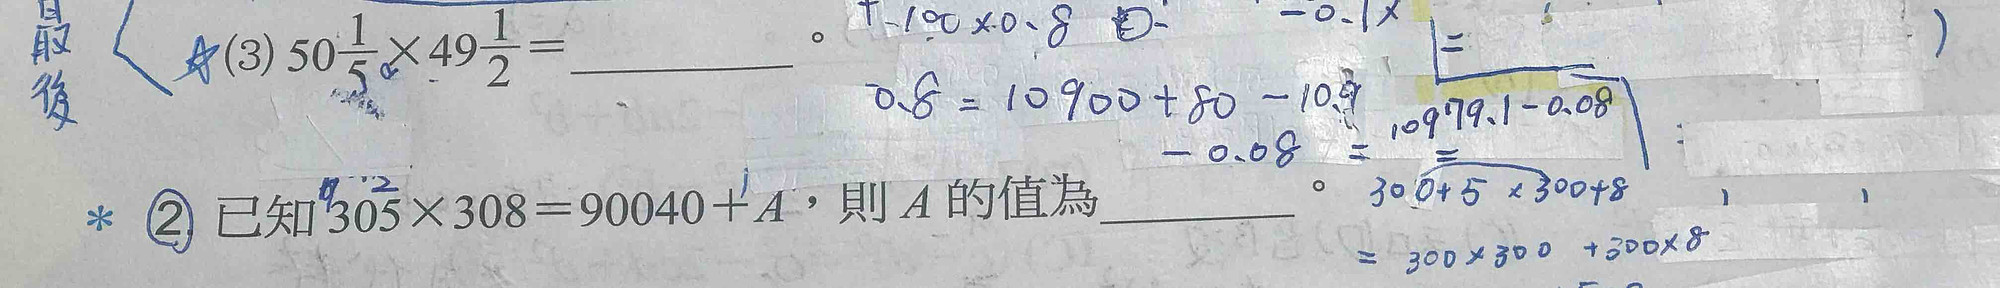 最後
☆(3) 50 1/5 × 49 1/2 = ________。
-100×0.8 -0.1×
=
0.8 = 10900+80 -10.9
10979.1-0.08
-0.08 = =
* ② 已知305×308=90040+A，則 A 的值為________。
300+5 ×300+8
= 300×300 +300×8